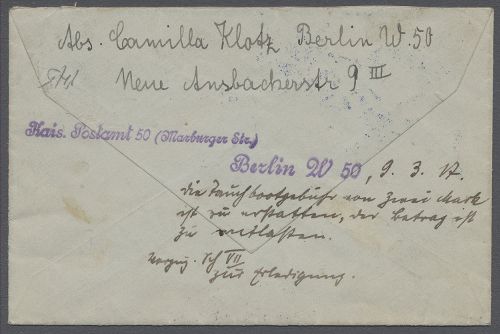 Abs. Camilla Klotz Berlin W. 50
Neue Ansbacherstr 9 III
Kais. Postamt 50 (Marburger Str.)
Berlin W 50, 9. 3. 17.
die Tauchbootgebühr von zwei Mark
ist zu erstatten, der Betrag ist
zu entlasten.
VII
zur Erledigung.